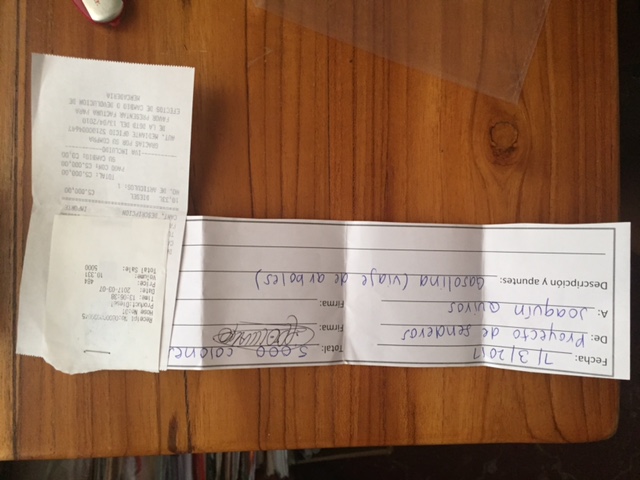 Fecha: 7/3/2017
Total: 5.000 colones
De: Proyecto de senderos
Firma:
A: Joaquín Quiros
Firma:
Descripción y apuntes: Gasolina (viaje de arboles)
Hose No:
Time: 13:06:38
Date: 2017-03-07
Price: 484
Volume: 10.331
Total Sale: 5000
CANT. DESCRIPCION IMPORTE
10,331 DIESEL ¢5.000,00
NO. DE ARTICULOS: 1
TOTAL: ¢5.000,00
PAGO CON: ¢5.000,00
SU CAMBIO: ¢0,00
GRACIAS POR SU COMPRA
DE LA DGTD DEL
FAVOR PRESENTAR FACTURA PARA
EFECTOS DE CAMBIO O DEVOLUCION DE
MERCADERIA